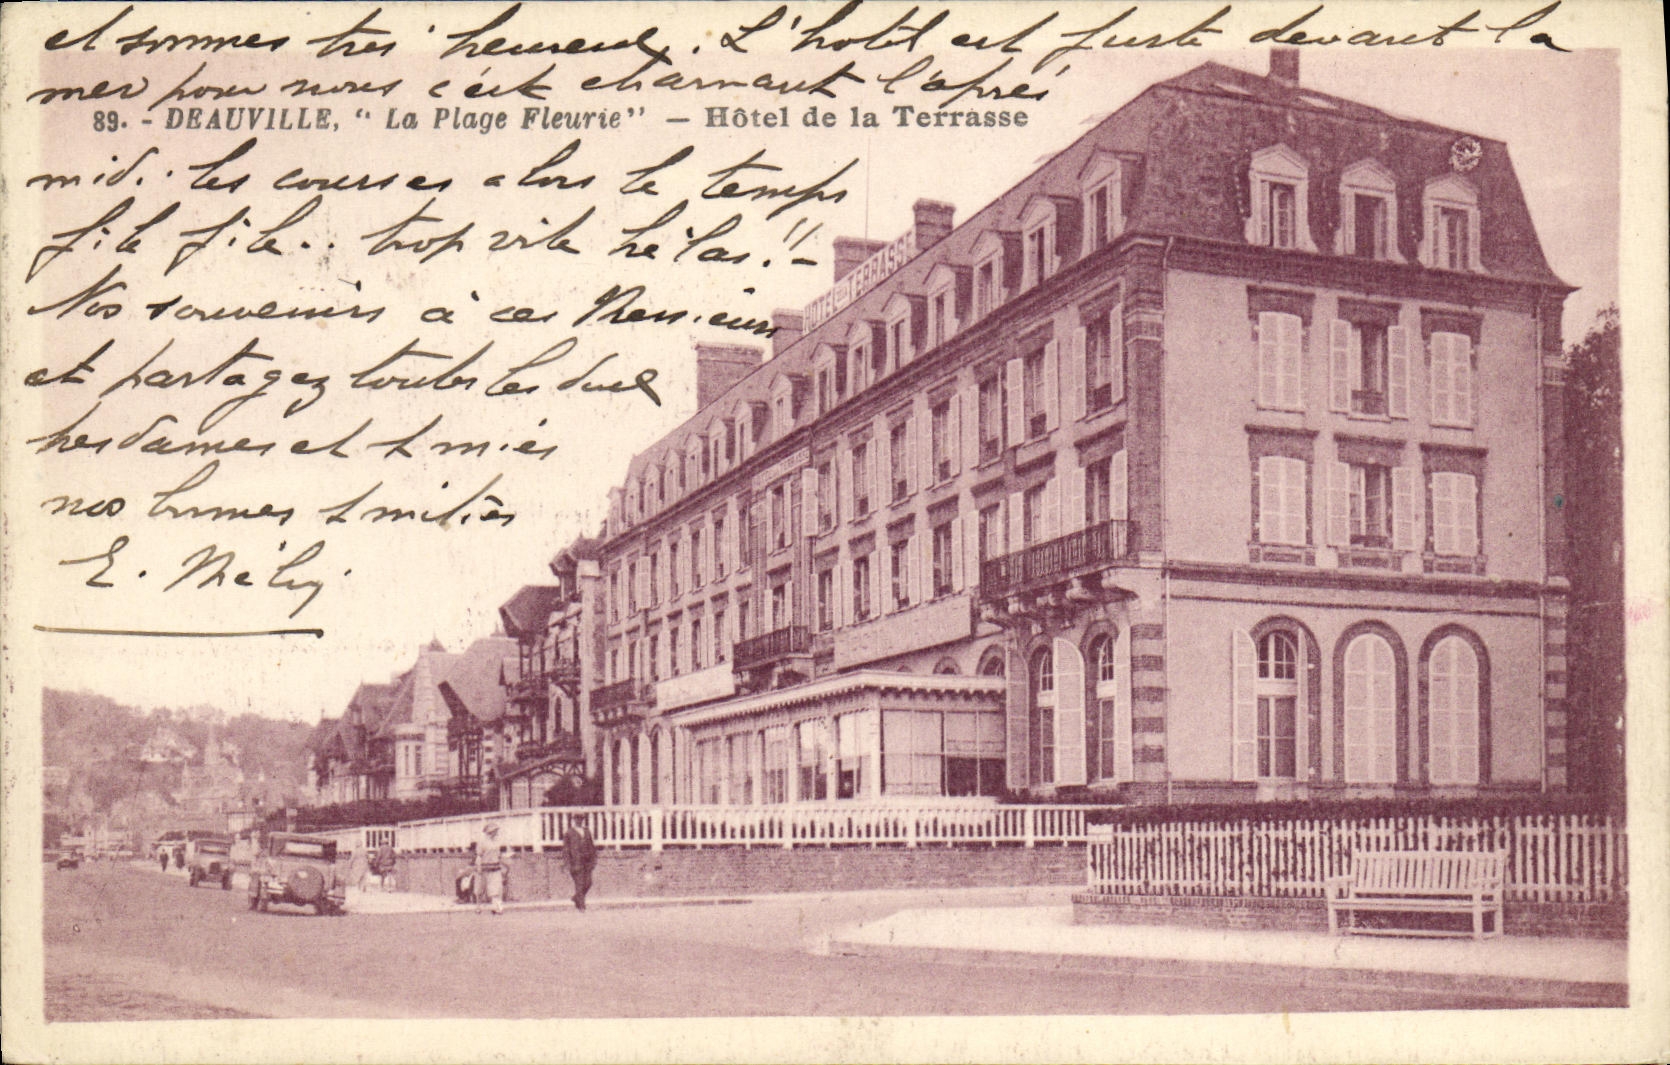 et sommes très heureux. L'hotel est juste devant la
mer pour nous c'est charmant l'après
89. - DEAUVILLE, "La Plage Fleurie" — Hôtel de la Terrasse
midi.. les courses alors le temps
file file.. trop vite hélas!!-
HOTEL DE LA TERRASSE
Nos souvenirs à ces Messieurs
et partagez toutes les deux
mesdames et amies
nos bonnes amitiés
E. Mély